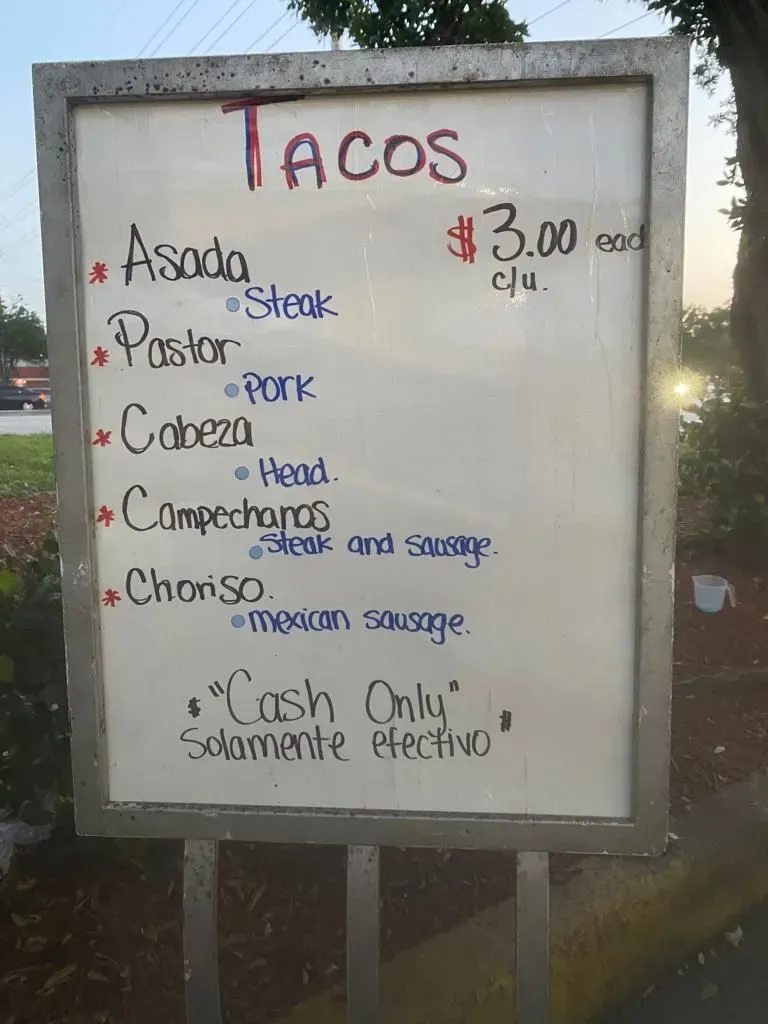 TACOS
* Asada
$3.00 ead
c/u.
• Steak
* Pastor
• Pork
* Cabeza
• Head.
* Campechanos
• Steak and sausage.
* Choriso.
• mexican sausage.
$ "Cash Only" $
Solamente efectivo